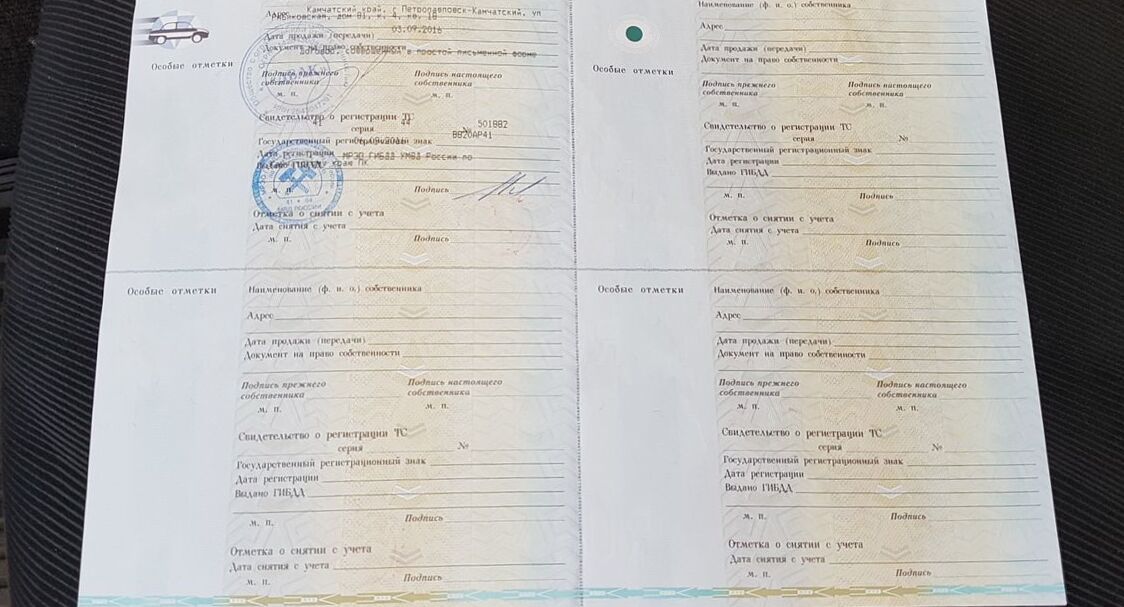 Адрес Камчатский край, г Петропавловск-Камчатский, ул
дом 81, к. 4, кв. 18
Дата продажи (передачи) 03.09.2016
Документ на право собственности
совершенный в простой письменной форме
Особые отметки
Подпись прежнего собственника
Подпись настоящего собственника
м. п.
м. п.
Свидетельство о регистрации ТС
серия 41 44 № 501882
Государственный регистрационный знак В820АР41
Дата регистрации
Выдано ГИБДД МРЭО ГИБДД УМВД России по
краю ПК
м. п. Подпись
Отметка о снятии с учета
Дата снятия с учета
м. п. Подпись
Наименование (ф. и. о.) собственника
Адрес
Дата продажи (передачи)
Документ на право собственности
Особые отметки
Подпись прежнего собственника
Подпись настоящего собственника
м. п.
м. п.
Свидетельство о регистрации ТС
серия №
Государственный регистрационный знак
Дата регистрации
Выдано ГИБДД
м. п. Подпись
Отметка о снятии с учета
Дата снятия с учета
м. п. Подпись
Особые отметки
Наименование (ф. и. о.) собственника
Адрес
Дата продажи (передачи)
Документ на право собственности
Подпись прежнего собственника
Подпись настоящего собственника
м. п.
м. п.
Свидетельство о регистрации ТС
серия №
Государственный регистрационный знак
Дата регистрации
Выдано ГИБДД
м. п. Подпись
Отметка о снятии с учета
Дата снятия с учета
м. п. Подпись
Особые отметки
Наименование (ф. и. о.) собственника
Адрес
Дата продажи (передачи)
Документ на право собственности
Подпись прежнего собственника
Подпись настоящего собственника
м. п.
м. п.
Свидетельство о регистрации ТС
серия №
Государственный регистрационный знак
Дата регистрации
Выдано ГИБДД
м. п. Подпись
Отметка о снятии с учета
Дата снятия с учета
м. п. Подпись